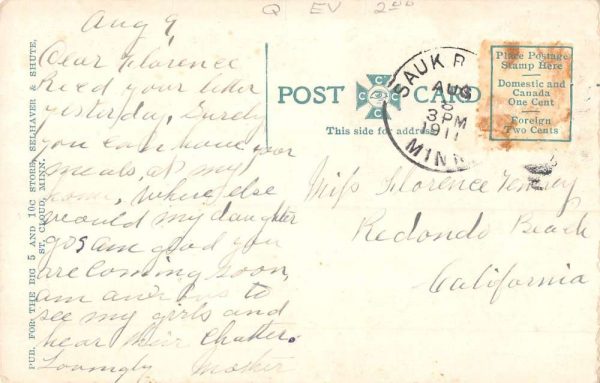 Q EV 2.00
Aug 9,
Dear Florence
Recd your letter
yesterday, Surely
you can have your
meals, at my
home, where else
would my daughter
go, am glad you
are coming soon,
am anxious to
see my girls and
hear their chatter.
Lovingly Mother
PUB. FOR THE BIG 5 AND 10C STORE, SELHAVER & SHUTE,
ST. CLOUD, MINN.
POST CARD
This side for address
SAUK R
AUG
3 PM
1911
MINN
Place Postage
Stamp Here
Domestic and
Canada
One Cent
Foreign
Two Cents
Miss Florence
Redondo Beach
California